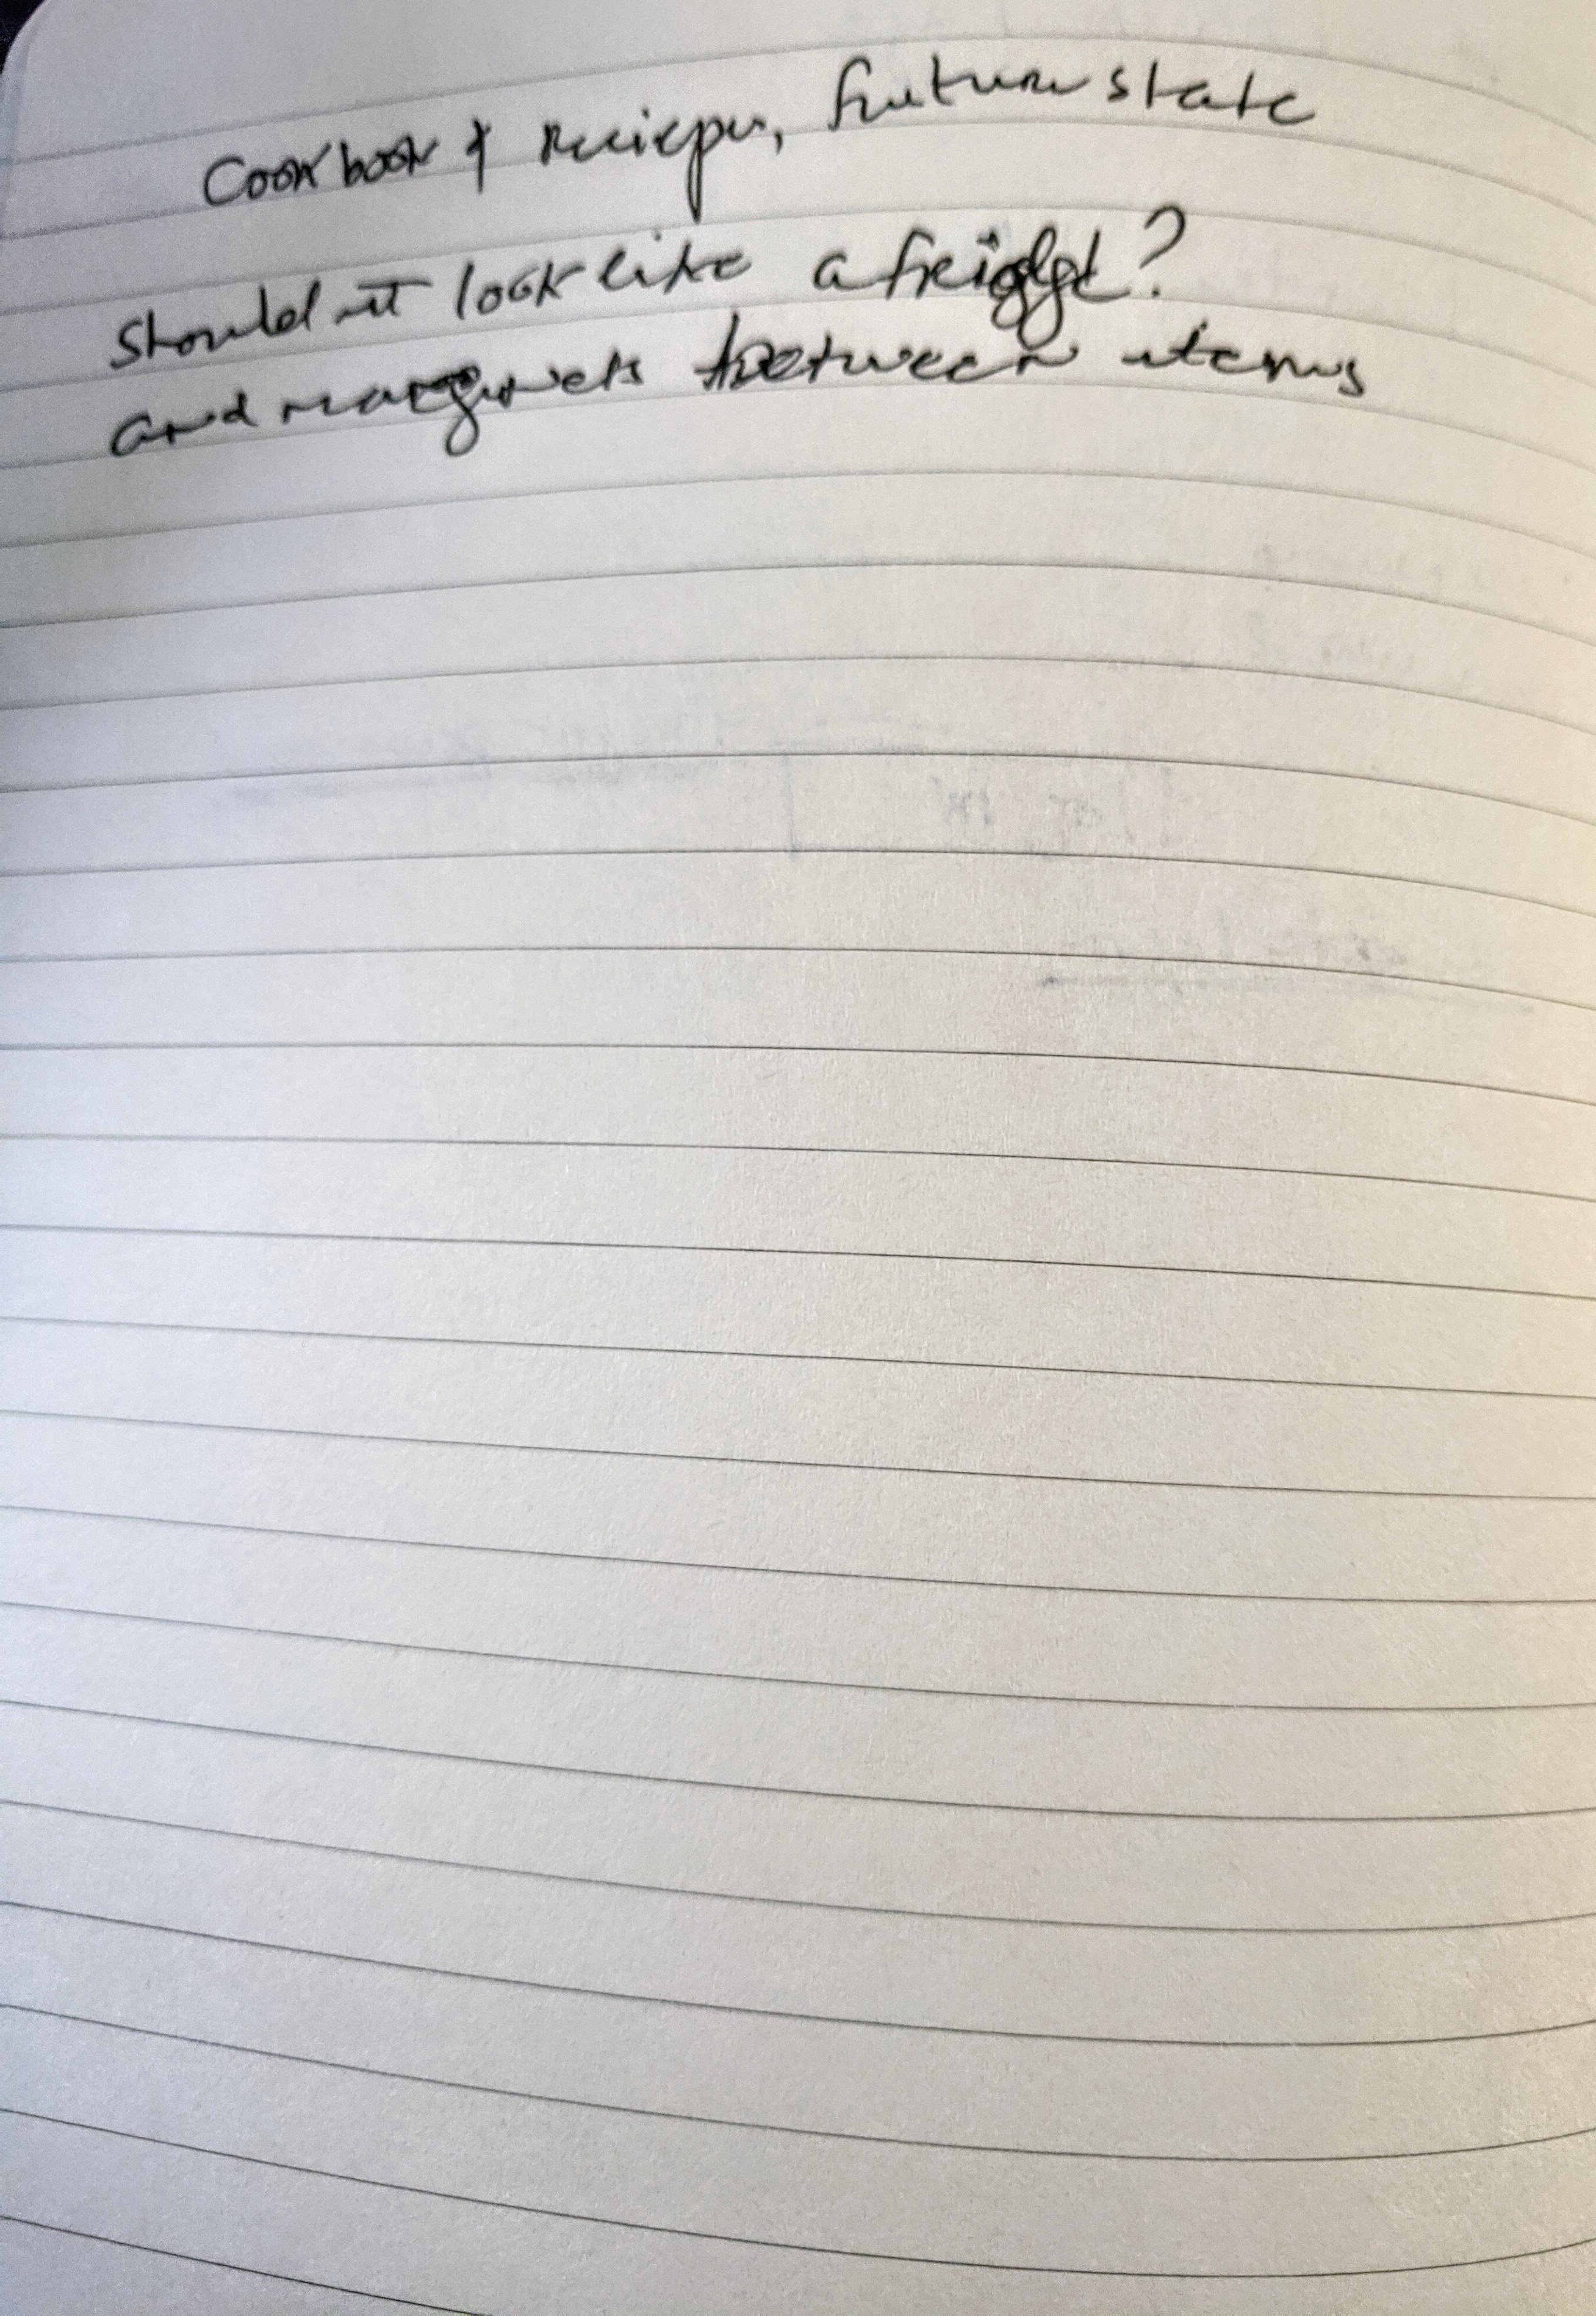 Cookbook & reciepes, future state
Should it look like a fridge?
and magnets between items